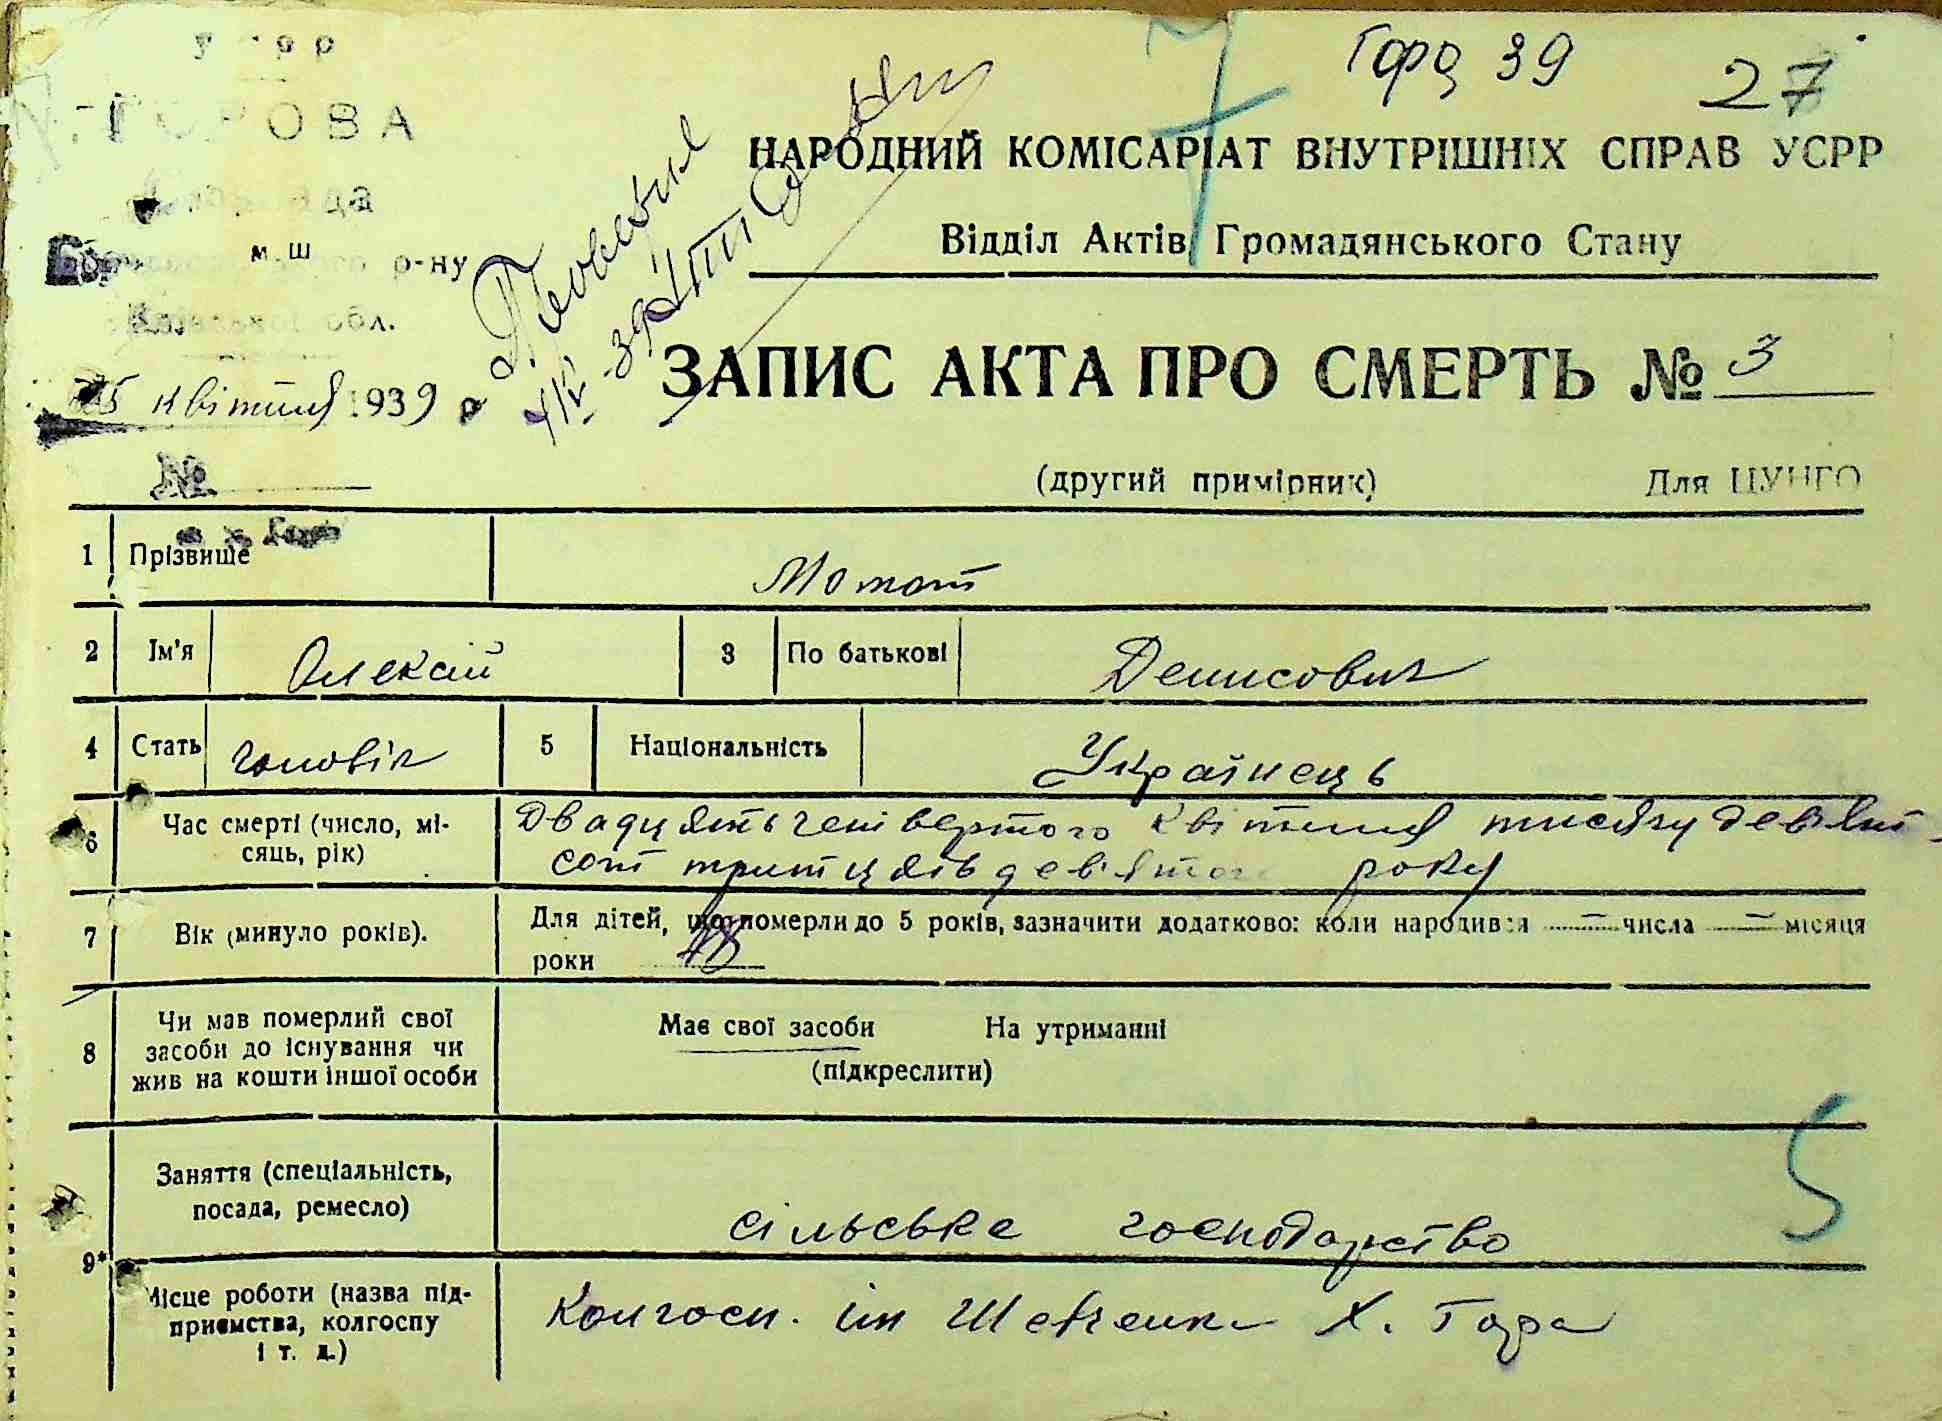 Горц 39
27
7
УСРР
ГОРОВА
м ш
р-ну
обл.
25 квітня 1939 р
№
НАРОДНИЙ КОМІСАРІАТ ВНУТРІШНІХ СПРАВ УСРР
Відділ Актів Громадянського Стану
ЗАПИС АКТА ПРО СМЕРТЬ № 3
(другий примірник) Для ЦУНГО
1 Прізвище Мотот
2 Ім'я Олексій 3 По батькові Денисович
4 Стать чоловік 5 Національність Українець
6 Час смерті (число, мі-
сяць, рік)
Двадцять четвертого квітня тисячу девят
сот тритцять девятого року
7 Вік (минуло років).
Для дітей, що померли до 5 років, зазначити додатково: коли народився — числа — місяця
роки 48
8 Чи мав померлий свої
засоби до існування чи
жив на кошти іншої особи
Має свої засоби На утриманні
(підкреслити)
5
9* Заняття (спеціальність,
посада, ремесло)
сільське господарство
Місце роботи (назва під-
приємства, колгоспу
і т. д.)
Колгосп. ім Шевченка Х. Гора